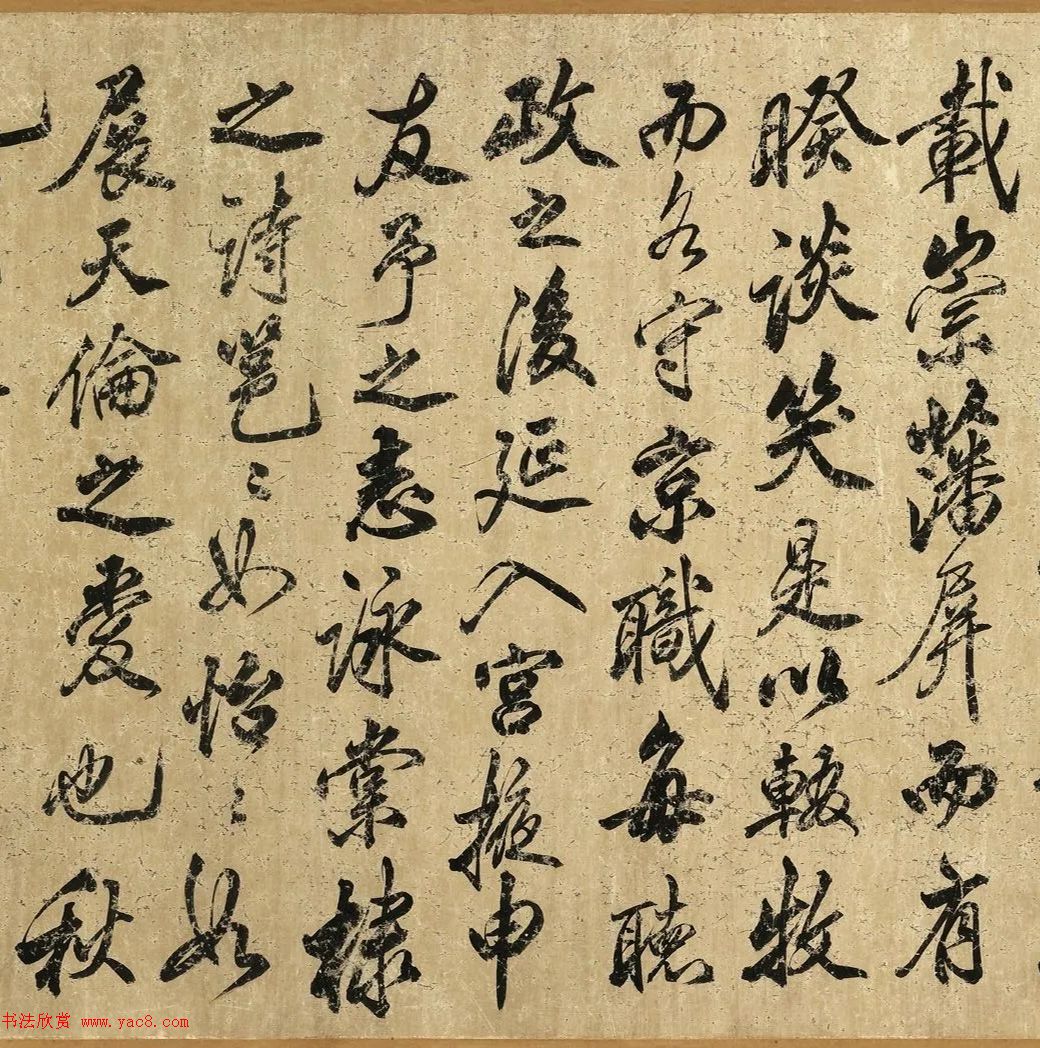 載崇藩屏而有
睽談笑是以輟牧
而各守京職每聽
政之後延入宮掖申
友于之志詠棠棣
之詩邕〻如怡〻如
展天倫之愛也秋
书法欣赏 www.yac8.com